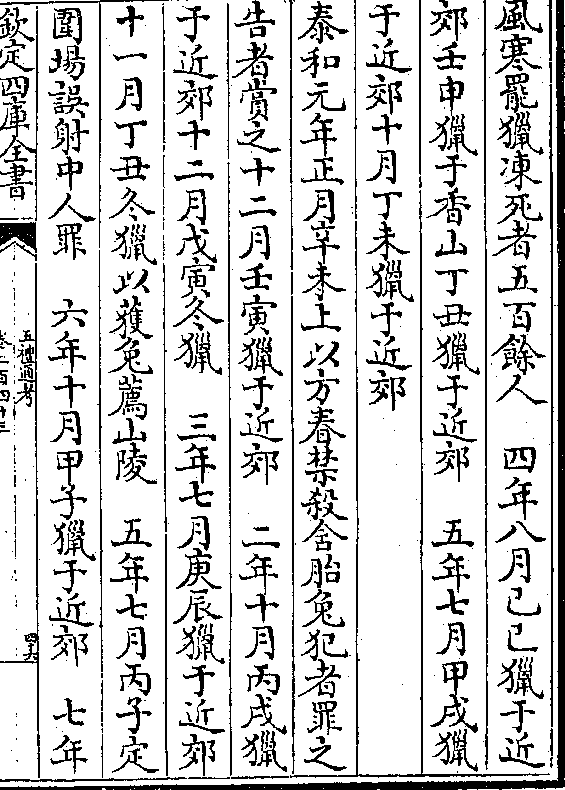 風寒罷獵凍死者五百餘人　四年八月己巳獵于近
郊壬申獵于香山丁丑獵于近郊　五年七月甲戌獵
于近郊十月丁未獵于近郊
泰和元年正月辛未上以方春禁殺含胎兔犯者罪之
告者賞之十二月壬寅獵于近郊　二年十月丙戌獵
于近郊十二月戊寅冬獵　三年七月庚辰獵于近郊
十一月丁丑冬獵以獲兔薦山陵　五年七月丙子定
圍場誤射中人罪　六年十月甲子獵于近郊　七年
欽定四庫全書
五禮通考
卷二百四十三
四六